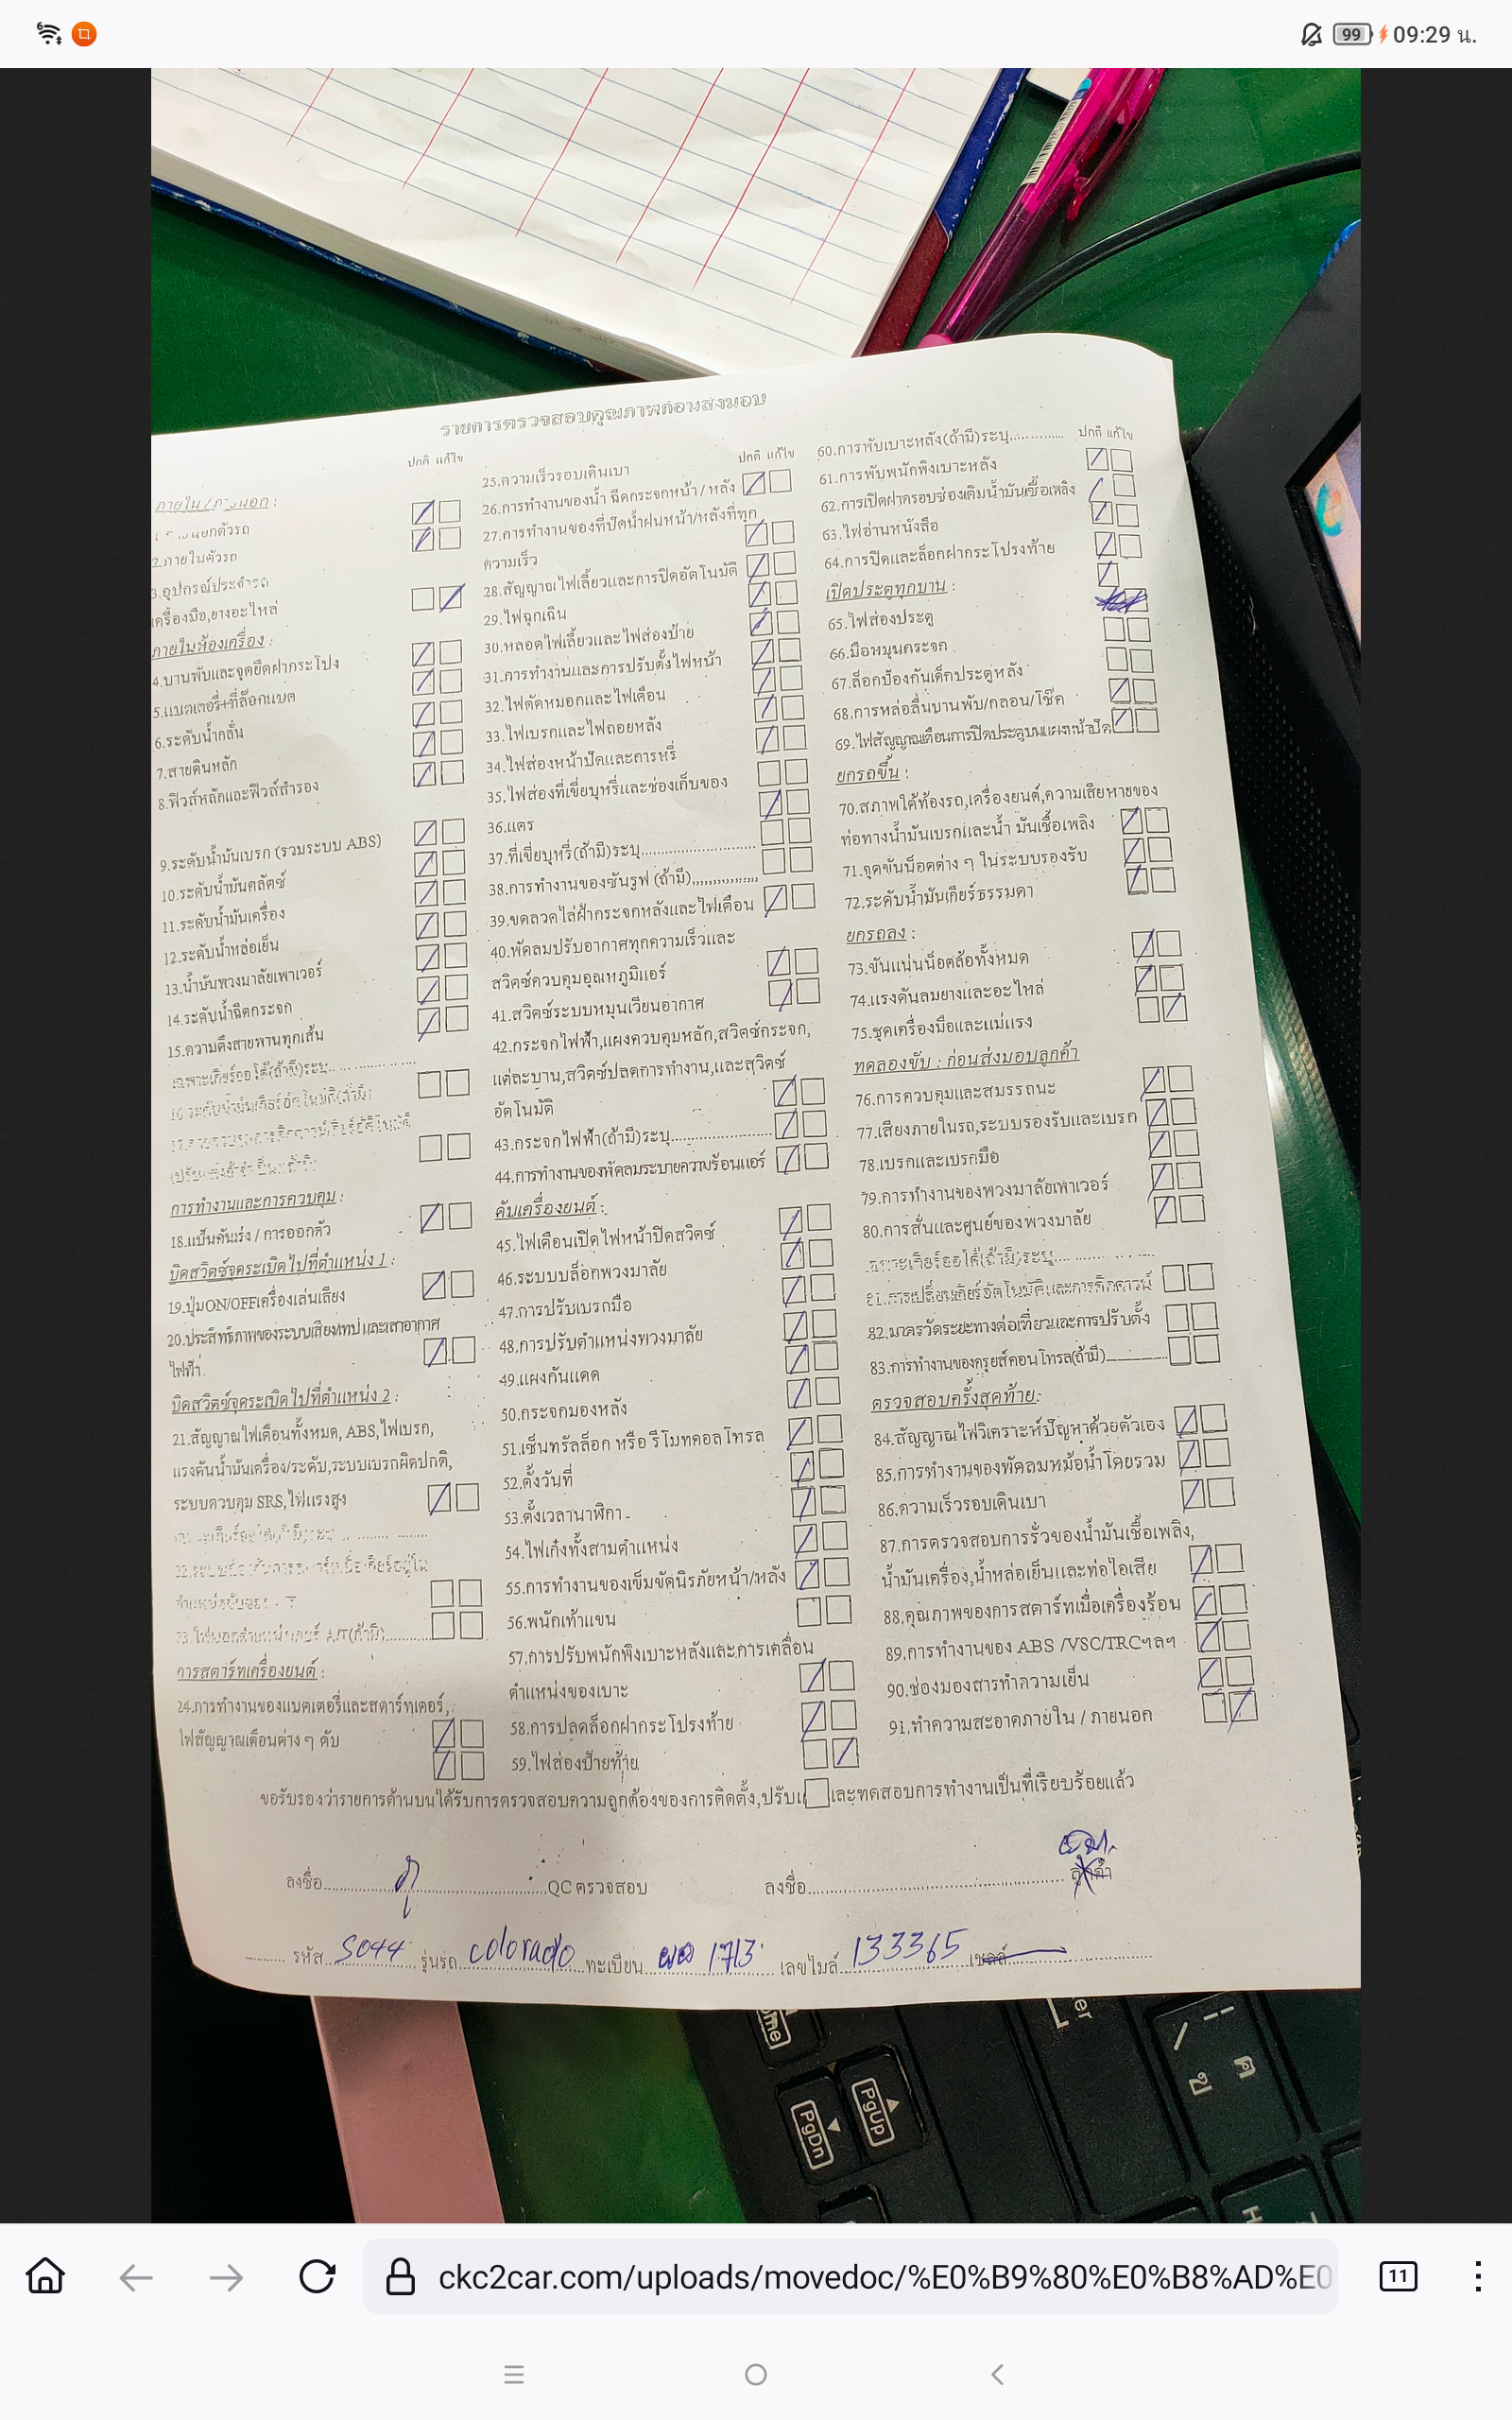 99 09:29 น.
รายการตรวจสอบคุณภาพก่อนส่งมอบ
ปกติ แก้ไข
ภายใน / ภายนอก :
2.ภายในตัวรถ
3.อุปกรณ์ประจำรถ
เครื่องมือ,ยางอะไหล่
ภายในห้องเครื่อง :
4.บานพับและจุดยึดฝากระโปง
5.แบตเตอรี่+ที่ล๊อกแบต
6.ระดับน้ำกลั่น
7.สายดินหลัก
8.ฟิวส์หลักและฟิวส์สำรอง
9.ระดับน้ำมันเบรก (รวมระบบ ABS)
10.ระดับน้ำมันคลัตช์
11.ระดับน้ำมันเครื่อง
12.ระดับน้ำหล่อเย็น
13.น้ำมันพวงมาลัยเพาเวอร์
14.ระดับน้ำฉีดกระจก
15.ความตึงสายพานทุกเส้น
เฉพาะเกียร์ออโต้(ถ้ามี)ระบุ..................
การทำงานและการควบคุม :
18.แป็นคันเร่ง / การออกตัว
บิดสวิตช์จุดระเบิดไปที่ตำแหน่ง 1 :
19.ปุ่มON/OFFเครื่องเล่นเสียง
20.ประสิทธิภาพของระบบเสียงเทป และเสาอากาศ
ไฟฟ้า.
บิดสวิตช์จุดระเบิดไปที่ตำแหน่ง 2 :
21.สัญญาณไฟเตือนทั้งหมด, ABS,ไฟเบรก,
แรงดันน้ำมันเครื่อง/ระดับ,ระบบเบรกผิดปกติ,
ระบบควบคุม SRS,ไฟแรงสูง
การสตาร์ทเครื่องยนต์ :
24.การทำงานของแบตเตอรี่และสตาร์ทเตอร์,
ไฟสัญญาณเตือนต่าง ๆ ดับ
ปกติ แก้ไข
25.ความเร็วรอบเดินเบา
26.การทำงานของน้ำ ฉีดกระจกหน้า / หลัง
27.การทำงานของที่ปัดน้ำฝนหน้า/หลังที่ทุก
ความเร็ว
28.สัญญาณไฟเลี้ยวและการปิดอัตโนมัติ
29.ไฟฉุกเฉิน
30.หลอดไฟเลี้ยวและไฟส่องป้าย
31.การทำงานและการปรับตั้งไฟหน้า
32.ไฟตัดหมอกและไฟเตือน
33.ไฟเบรกและไฟถอยหลัง
34.ไฟส่องหน้าปัดและการหรี่
35.ไฟส่องที่เขี่ยบุหรี่และช่องเก็บของ
36.แตร
37.ที่เขี่ยบุหรี่(ถ้ามี)ระบุ..........................
38.การทำงานของซันรูฟ (ถ้ามี),,,,,,,,,,,,,,,
39.ขดลวดไล่ฝ้ากระจกหลังและไฟเตือน
40.พัดลมปรับอากาศทุกความเร็วและ
สวิตช์ควบคุมอุณหภูมิแอร์
41.สวิตช์ระบบหมุนเวียนอากาศ
42.กระจกไฟฟ้า,แผงควบคุมหลัก,สวิตช์กระจก,
แต่ละบาน,สวิตช์ปลดการทำงาน,และสวิตช์
อัตโนมัติ
43.กระจกไฟฟ้า(ถ้ามี)ระบุ.......................
44.การทำงานของพัดลมระบายความร้อนแอร์
ดับเครื่องยนต์ :
45.ไฟเตือนเปิดไฟหน้าปิดสวิตช์
46.ระบบบล็อกพวงมาลัย
47.การปรับเบรกมือ
48.การปรับตำแหน่งพวงมาลัย
49.แผงกันแดด
50.กระจกมองหลัง
51.เซ็นทรัลล็อก หรือ รีโมทคอลโทรล
52.ตั้งวันที่
53.ตั้งเวลานาฬิกา
54.ไฟเก๋งทั้งสามตำแหน่ง
55.การทำงานของเข็มขัดนิรภัยหน้า/หลัง
56.พนักเท้าแขน
57.การปรับพนักพิงเบาะหลังและการเคลื่อน
ตำแหน่งของเบาะ
58.การปลดล็อกฝากระโปรงท้าย
59.ไฟส่องป้ายท้าย
ปกติ แก้ไข
60.การพับเบาะหลัง(ถ้ามี)ระบุ.............
61.การพับพนักพิงเบาะหลัง
62.การเปิดฝาครอบช่องเติมน้ำมันเชื้อเพลิง
63.ไฟอ่านหนังสือ
64.การปิดและล็อกฝากระโปรงท้าย
เปิดประตูทุกบาน :
65.ไฟส่องประตู
66.มือหมุนกระจก
67.ล็อกป้องกันเด็กประตูหลัง
68.การหล่อลื่นบานพับ/กลอน/โช๊ค
69.ไฟสัญญาณเตือนการปิดประตูบนแผงหน้าปัด
ยกรถขึ้น :
70.สภาพใต้ท้องรถ,เครื่องยนต์,ความเสียหายของ
ท่อทางน้ำมันเบรกและน้ำ มันเชื้อเพลิง
71.จุดขันน็อตต่าง ๆ ในระบบรองรับ
72.ระดับน้ำมันเกียร์ธรรมดา
ยกรถลง :
73.ขันแน่นน็อตล้อทั้งหมด
74.แรงดันลมยางและอะไหล่
75.ชุดเครื่องมือและแม่แรง
ทดลองขับ : ก่อนส่งมอบลูกค้า
76.การควบคุมและสมรรถนะ
77.เสียงภายในรถ,ระบบรองรับและเบรก
78.เบรกและเบรกมือ
79.การทำงานของพวงมาลัยเพาเวอร์
80.การสั่นและศูนย์ของพวงมาลัย
เฉพาะเกียร์ออโต้(ถ้ามี)ระบุ..................
81.การเปลี่ยนเกียร์อัตโนมัติและการคิกดาวน์
82.มาตรวัดระยะทางต่อเที่ยวและการปรับตั้ง
83.การทำงานของครุยส์คอนโทรล(ถ้ามี)
ตรวจสอบครั้งสุดท้าย:
84.สัญญาณไฟวิเคราะห์ปัญหาด้วยตัวเอง
85.การทำงานของพัดลมหม้อน้ำโดยรวม
86.ความเร็วรอบเดินเบา
87.การตรวจสอบการรั่วของน้ำมันเชื้อเพลิง,
น้ำมันเครื่อง,น้ำหล่อเย็นและท่อไอเสีย
88.คุณภาพของการสตาร์ทเมื่อเครื่องร้อน
89.การทำงานของ ABS /VSC/TRCฯลฯ
90.ช่องมองสารทำความเย็น
91.ทำความสะอาดภายใน / ภายนอก
ขอรับรองว่ารายการด้านบนได้รับการตรวจสอบความถูกต้องของการติดตั้ง,ปรับแ ละทดสอบการทำงานเป็นที่เรียบร้อยแล้ว
ลงชื่อ..........QC ตรวจสอบ ลงชื่อ.......... ลูกค้า
รหัส 5044 รุ่นรถ colorado ทะเบียน ผผ 1713 เลขไมล์ 133365 เซลล์
ome
PgUp
PgDn
ckc2car.com/uploads/movedoc/%E0%B9%80%E0%B8%AD%E0
11